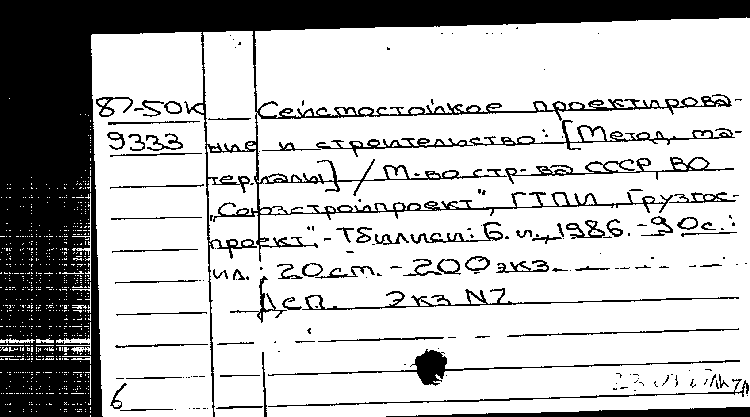 87-50К Сейсмостойкое проектирова-
9333 ние и строительство: [Метод. ма-
териалы] / М-во стр-ва СССР, ВО
"Союзстройпроект", ГТПИ "Грузгос-
проект". - Тбилиси: Б. и., 1986. - 90 с.:
ил.; 20 см. - 200 экз.
Дсп. Экз N7
6